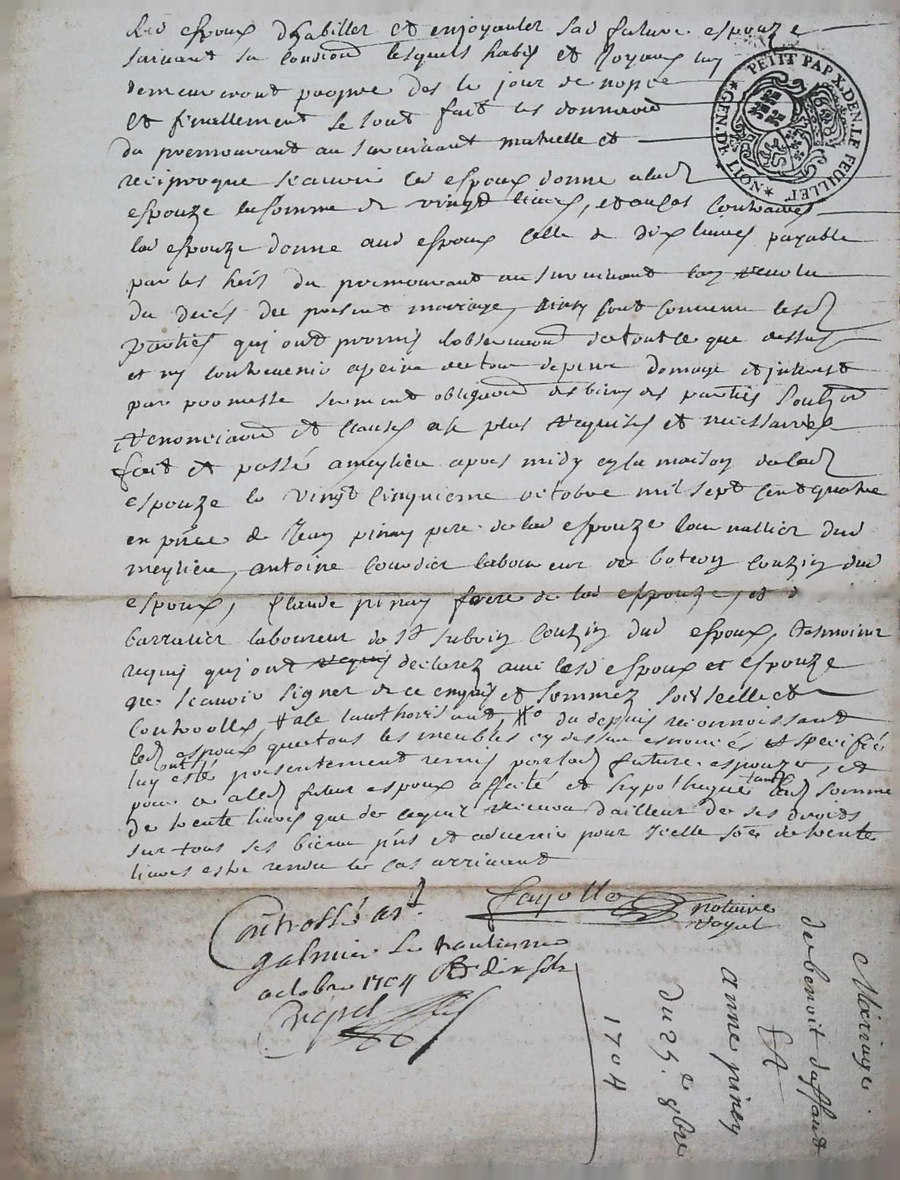 led espoux dhabiller et enjoyauler sad future espouze
suivant sa condiōn lesquels habis et joyaux luy
demeureront propre des le jour de nopce
et finallement se sont fait les donnaōn
du premourant au survivant mutuelle et
reciproque scavoir led espoux donne a lad
espouze la somme de vingt livres, et au cas contraires
lad espouze donne aud espoux celle de dix livres payable
par les heirs du premourant au survivant lan revolu
du decés du present mariage, ainsy sont convenu lesd
parties qui ont promis lobservaōn de tout ce que dessus
et ny contrevenir a peine de tous depens domage et interest
par promesse serment obligaōn des biens des parties soubzōn
renonciaōn et clauses a ce plus requises et necessaires
fait et passé a meylieu apres midy en la maison de lad
espouze le vingt cinquieme octobre mil sept cent quatre
en pñce de Jean pinay pere de lad espouze dud
meylieu, antoine laboureur de couzin dud
espoux, Claude pinay frere de lad espouze, et
barralier laboureur de St couzin dud espoux, tesmoins
requis qui ont requis declarez avec lesd espoux et espouze
ne scavoir signer de ce enquis et sommez soit scellé et
controollé du depuis reconnoissant
led espoux que tous les meubles cy dessus enoncés et specifié
luy ont esté presentement remis par lad future espouze, et
pour ce a led futur espoux affecté et hypothequé tant lad somme
de trente livres que de ce quil recevra dailleur de ses droits
sur tous ses biens pñs et advenir pour icelle sōe de trente
livres estre rendu le cas arrivant
fayolle notaire
royal
Controllé a St
galmier le trentieme
octobre 1704 R dix sols
PETIT PAP X. DEN. LE FEUILLET
GEN. DE
Mariage
de benoit daffaud
Et
anne piney
du 25.e 8bre
1704